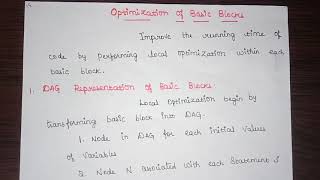 Optimization of Basic Blocks
Improve the running time of
code by performing local optimization within each
basic block.
1. DAG Representation of Basic Blocks:
Local Optimization begin by
transforming basic block into DAG.
1. Node in DAG for each initial Values
of Variables
2. Node N associated with each Statement S